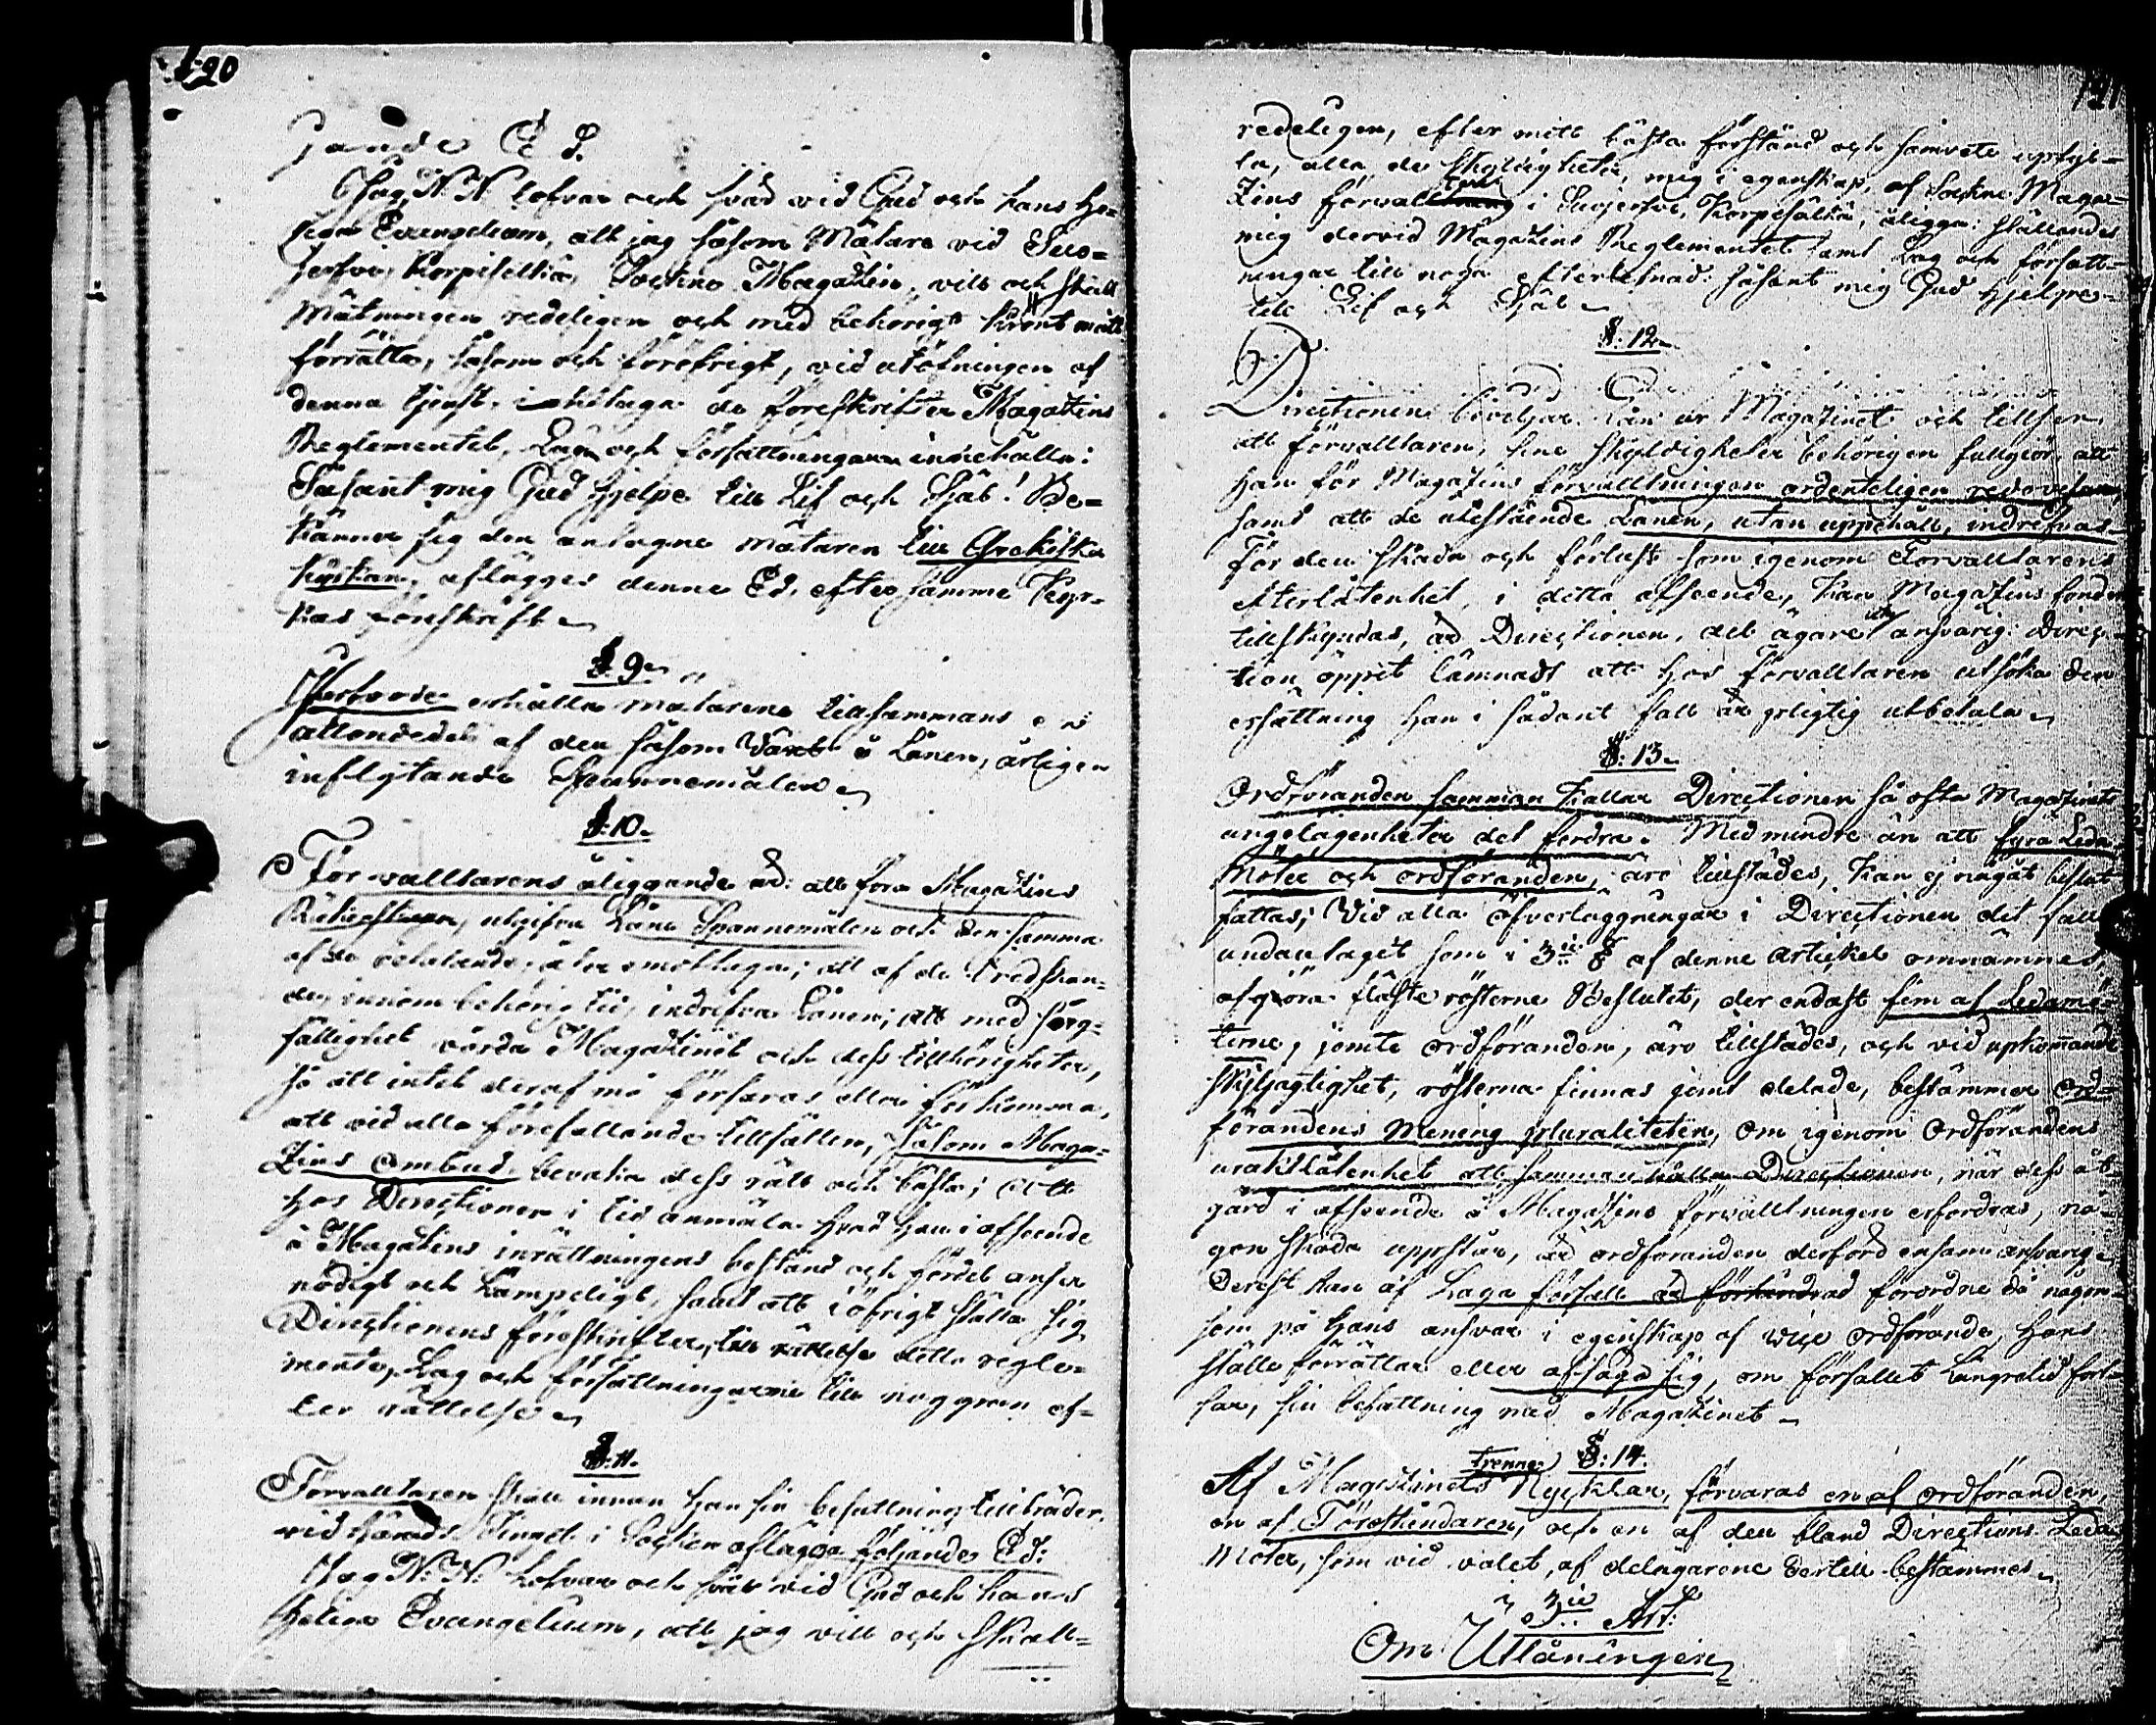 120
jande Ed.
Jag N. N. lofvar och svär vid Gud och hans he-
liga Evangelium, att jag såsom Mätare vid Suo-
jerfvi, Korpiselkä, Sockne Magazin, vill och skall
Mätningen redeligen och med behörigt Krönt mått
förrätta, såsom och föröfrigt, vid utöfningen af
denna tjenst, iakttaga de föreskrifter Magazins
Reglementet, Lag och författningarne innehålla:
Såsant mig Gud hjelpe till Lif och Själ! Be-
känner sig den antagne mätaren till Grekiska
Kyrkan, aflägges denne Ed, efter samma Kyr-
kas föreskrift
§. 9.
erhålla mätarene tillsammans en
åttondedel af den såsom Växt å Lånen, årligen
inflytande Spannemålen
§. 10.
Förvalltarens åliggande är: att föra Magazins
Räkenskapen, utgifva Låne Spannemålen och den samma
af de betalande, åter emottaga; att af de tredskan-
de, innom behörig tid, indrifva Lånen; att med sorg-
fällighet vårda Magazinet och dess tillhörigheter,
så att intet deraf må förfaras eller förkomma,
att vid alla förefallande tillfällen, såsom Maga-
zins Ombud, bevaka dess rätt och bästa; att
hos Directionen i tid anmäla hvad han i afseende
å Magazins inrättningens bestånd och fördel anser
nödigt och Lämpeligt, samt att i öfrigt ställa sig
Directionens föreskrifter, till rättelse detta regle-
mente, Lag och författningarne till noggrann ef-
ter rättelse
§. 11.
Förvalltaren skall innan han sin befattning tillträder,
vid Härads Tinget i Socknen aflägga följande Ed:
Jag N. N. Lofvar och svär vid Gud och hans
Helina Evangelium, att jag vill och skall-
121
redeligen, efter mitt bästa förstånd och samvete upfyl-
la, alla de skyldigheter, mig i egenskap, af Sockne Maga-
zins förvalltare i Suojerfvi, Korpiselkä, åligga: ställandes
mig dervid Magazins Reglementet samt Lag och författ-
ningar till noga efterlefnad. Såsant mig Gud hjelpe
till Lif och Själ
§. 12
Directionen beviljar Lån ur Magazinet och tillser
att förvalltaren, sine skyldigheter behörigen fullgiör, att
han för Magazins förvalltningen ordenteligen redovisar,
samt att de utestående Lånen, utan uppehåll, indrifvas
För den skada och förlust som igenom Förvalltarens
efterlåtenhet, i detta afseende, kan Magazins fonden
tillskyndas, är Directionen, det ägare ansvarig: Direc-
tion öppet lämnadt att hos förvalltaren utsöka den
ersättning han i sådant fall är pligtig utbetala
§. 13.
Ordföranden sammankallar Directionen så ofta Magazinets
angelägenheter det fordra. Med mindre än att fyra Leda-
möter och ordföranden, äro tillstädes, kan ej något beslut
fattas; Vid alla öfverläggningar i Directionen det fall
undantaget som i 3:ie § af denne Artickel omnämnes,
afgiöra fläste rösterne Beslutet, der endast fem af Ledamö-
terne, jemte ordföranden, äro tillstädes, och vid upkommande
skiljagtighet, rösterna finnas jemt delade, bestämmer Ord-
förandens Mening pluraliteten, Om igenom Ordförandens
uraktlåtenhet att sammankalla Directionen, när dess åt-
gärd i afseende å Magazins förvalltningen erfordras, nå-
gon skada uppstår, är ordföranden derföre ensam ansvarig
Derest han af Laga förfall är förhindrad förordne då någon
som på hans ansvar i egenskap af vice ordförande, hans
ställe förrättar eller afsäga sig, om förfallet Längretid fort-
far, sin befattning med Magazinet
§: 14.
Af Magazinets trenne Nycklar, förvaras en af ordföranden,
en af Föreståndaren, och en af den bland Directions Leda-
möter, som vid valet, af delägarene dertill bestämmes
3:ie Art:
Om Utlåningen